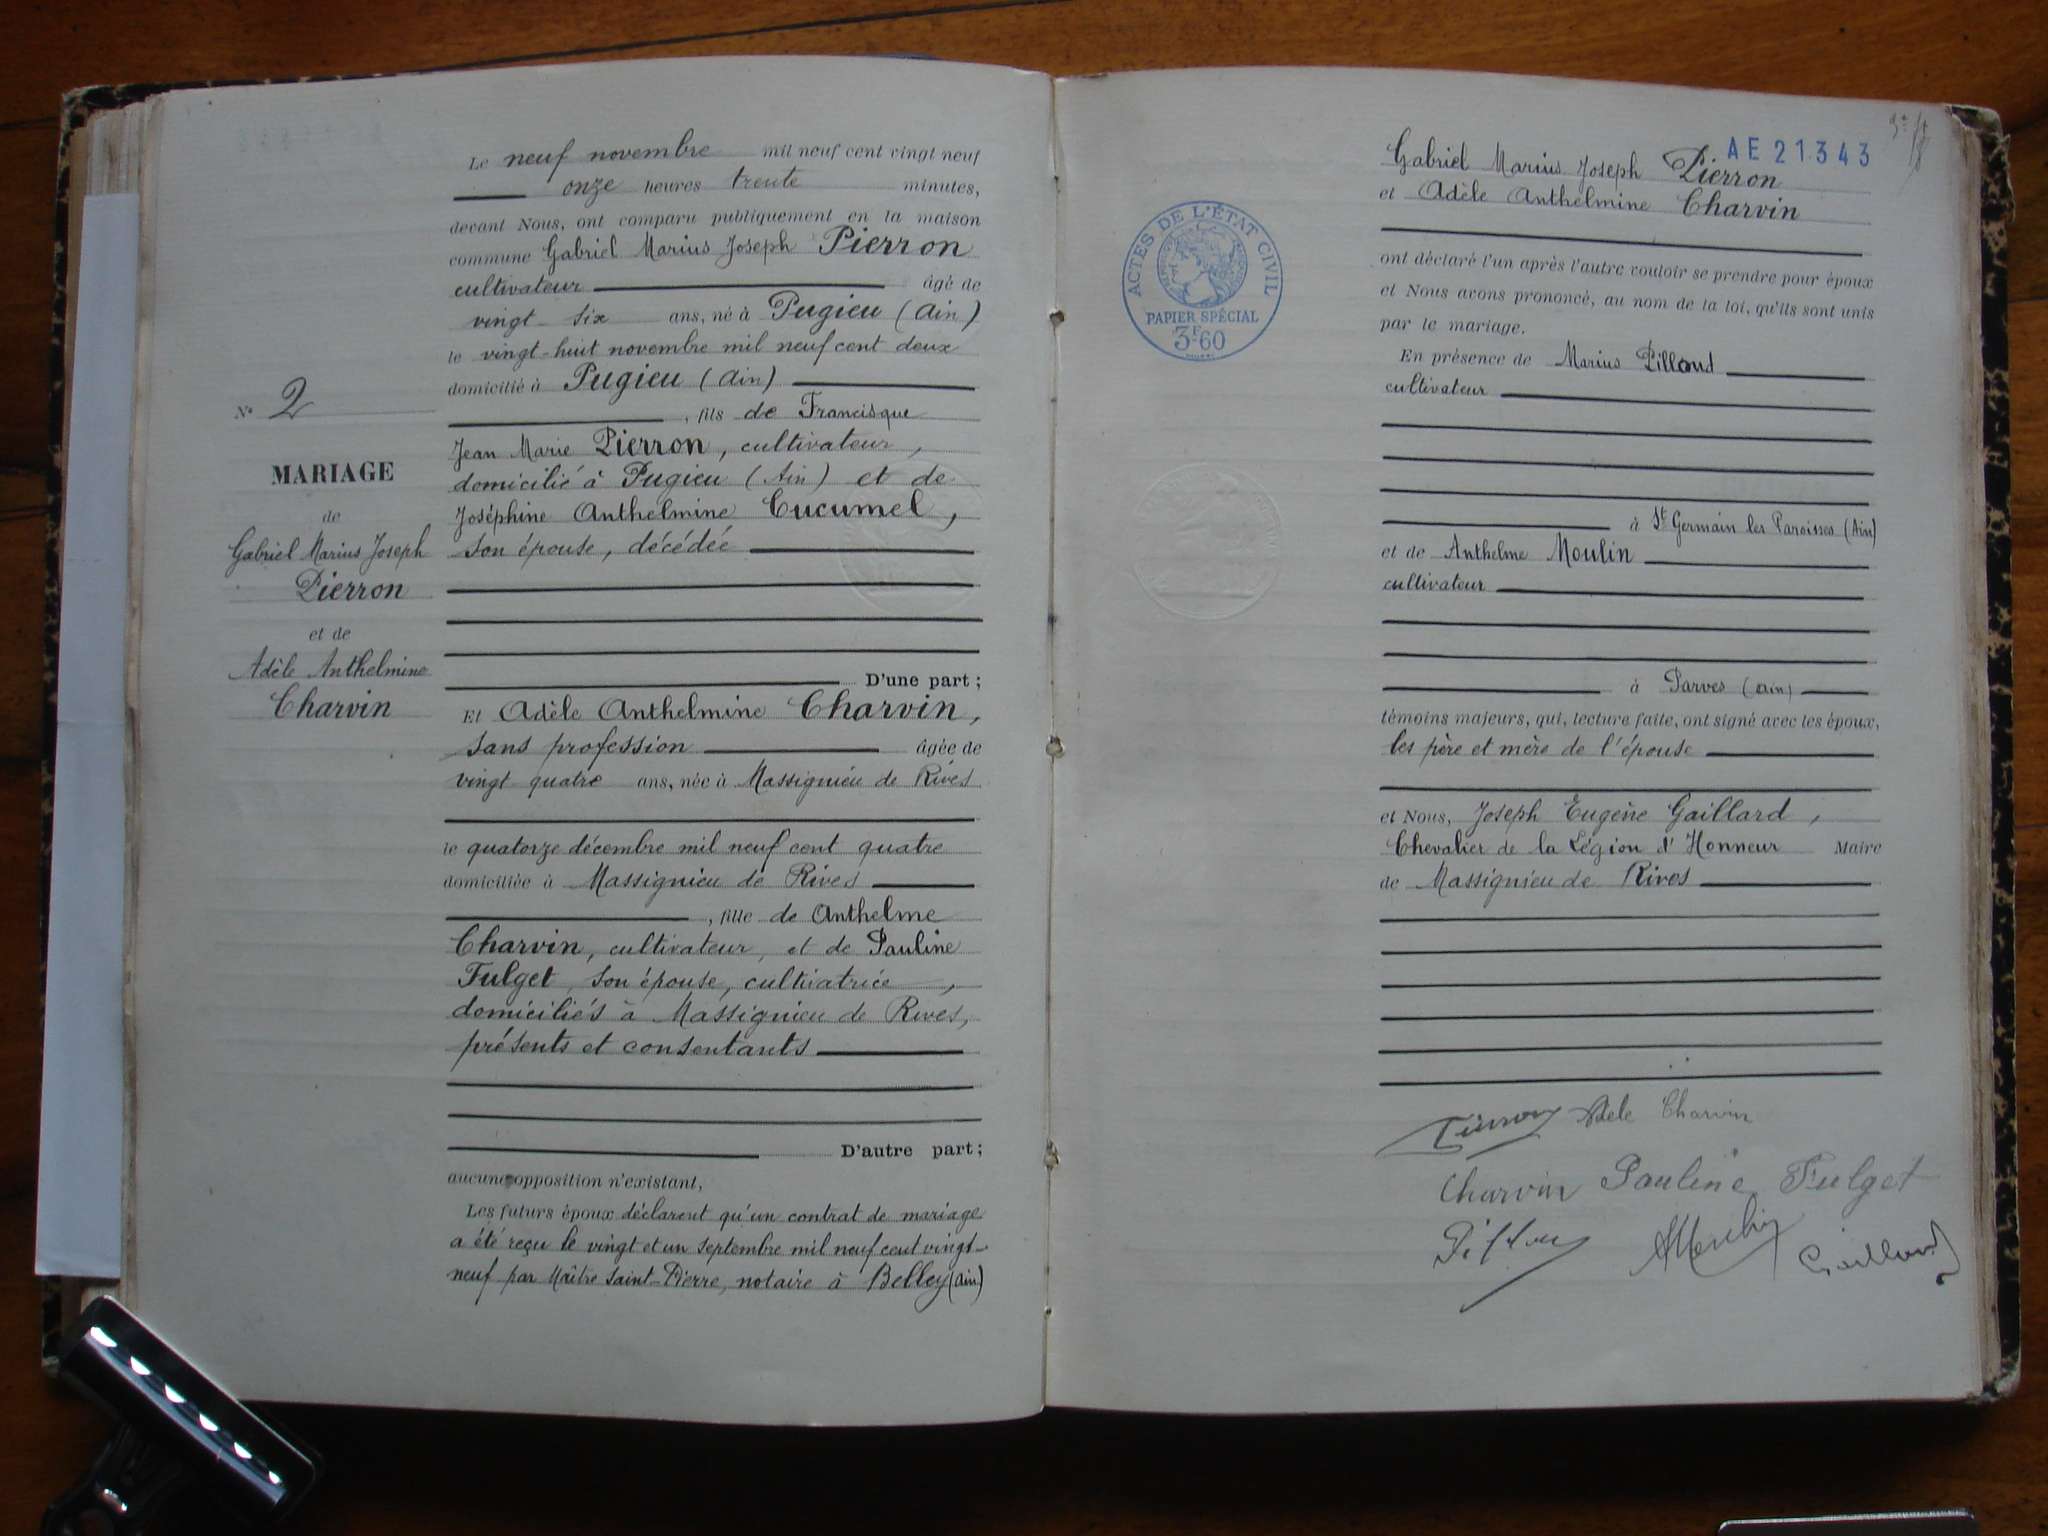 N° 2
MARIAGE
de
Gabriel Marius Joseph
Pierron
et de
Adèle Anthelmine
Charvin
Le neuf novembre mil neuf cent vingt neuf
onze heures trente minutes,
devant Nous, ont comparu publiquement en la maison
commune Gabriel Marius Joseph Pierron
cultivateur âgé de
vingt-six ans, né à Pugieu (Ain)
le vingt-huit novembre mil neuf cent deux
domicilié à Pugieu (Ain)
, fils de Francisque
Jean Marie Pierron, cultivateur,
domicilié à Pugieu (Ain) et de
Joséphine Anthelmine Cucumel,
son épouse, décédée
D'une part;
Et Adèle Anthelmine Charvin,
sans profession âgée de
vingt quatre ans, née à Massignieu de Rives
le quatorze décembre mil neuf cent quatre
domiciliée à Massignieu de Rives
, fille de Anthelme
Charvin, cultivateur, et de Pauline
Fulget, son épouse, cultivatrice,
domiciliés à Massignieu de Rives,
présents et consentants
D'autre part;
aucune opposition n'existant,
Les futurs époux déclarent qu'un contrat de mariage
a été reçu le vingt et un septembre mil neuf cent vingt-
neuf par Maître Saint-Pierre, notaire à Belley (Ain)
AE 21343
Gabriel Marius Joseph Pierron
et Adèle Anthelmine Charvin
ACTES DE L'ÉTAT CIVIL
PAPIER SPÉCIAL
3F60
ont déclaré l'un après l'autre vouloir se prendre pour époux
et Nous avons prononcé, au nom de la loi, qu'ils sont unis
par le mariage.
En présence de Marius Pilloud
cultivateur
à St Germain les Paroisses (Ain)
et de Anthelme Moulin
cultivateur
à Parves (Ain)
témoins majeurs, qui, lecture faite, ont signé avec les époux,
les père et mère de l'épouse
et Nous, Joseph Eugène Gaillard,
Chevalier de la Légion d'Honneur Maire
de Massignieu de Rives
Pierron Adele Charvin
Charvin Pauline Fulget
Gaillard